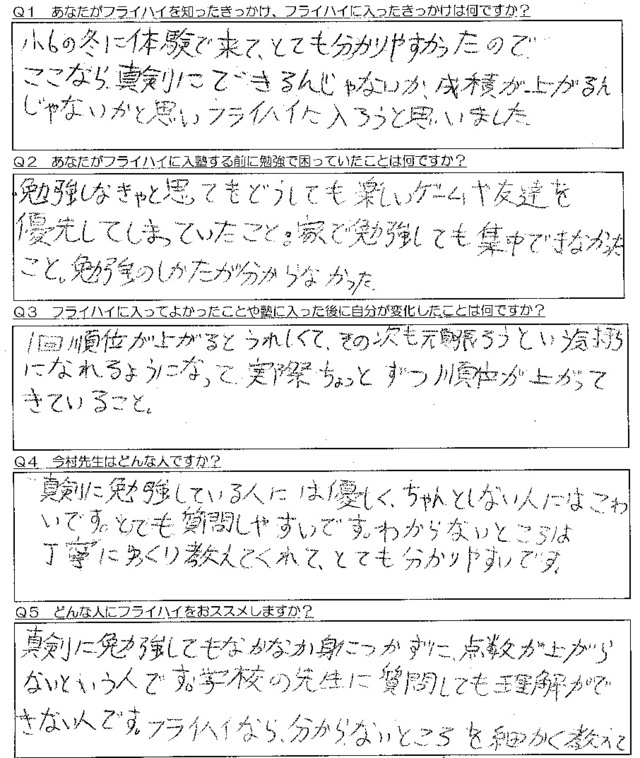 Q1 あなたがフライハイを知ったきっかけ、フライハイに入ったきっかけは何ですか？
小6の冬に体験で来て、とても分かりやすかったので
ここなら、真剣にできるんじゃないか、成積が上がるん
じゃないかと思いフライハイに入ろうと思いました。
Q2 あなたがフライハイに入塾する前に勉強で困っていたことは何ですか？
勉強しなきゃと思ってもどうしても楽しいゲームや友達を
優先してしまっていたこと。家で勉強しても集中できなかった
こと。勉強のしかたが分からなかった。
Q3 フライハイに入ってよかったことや塾に入った後に自分が変化したことは何ですか？
1回順位が上がるとうれしくて、その次も頑張ろうという気持ち
になれるようになって、実際ちょっとずつ順位が上がって
きていること。
Q4 今村先生はどんな人ですか？
真剣に勉強している人には優しく、ちゃんとしない人にはこわ
いです。とても質問しやすいです。わからないところは
丁寧にゆっくり教えてくれて、とても分かりやすいです。
Q5 どんな人にフライハイをおススメしますか？
真剣に勉強してもなかなか身につかずに、点数が上がら
ないという人です。学校の先生に質問しても理解がで
きない人です。フライハイなら、分からないところを細かく教えて